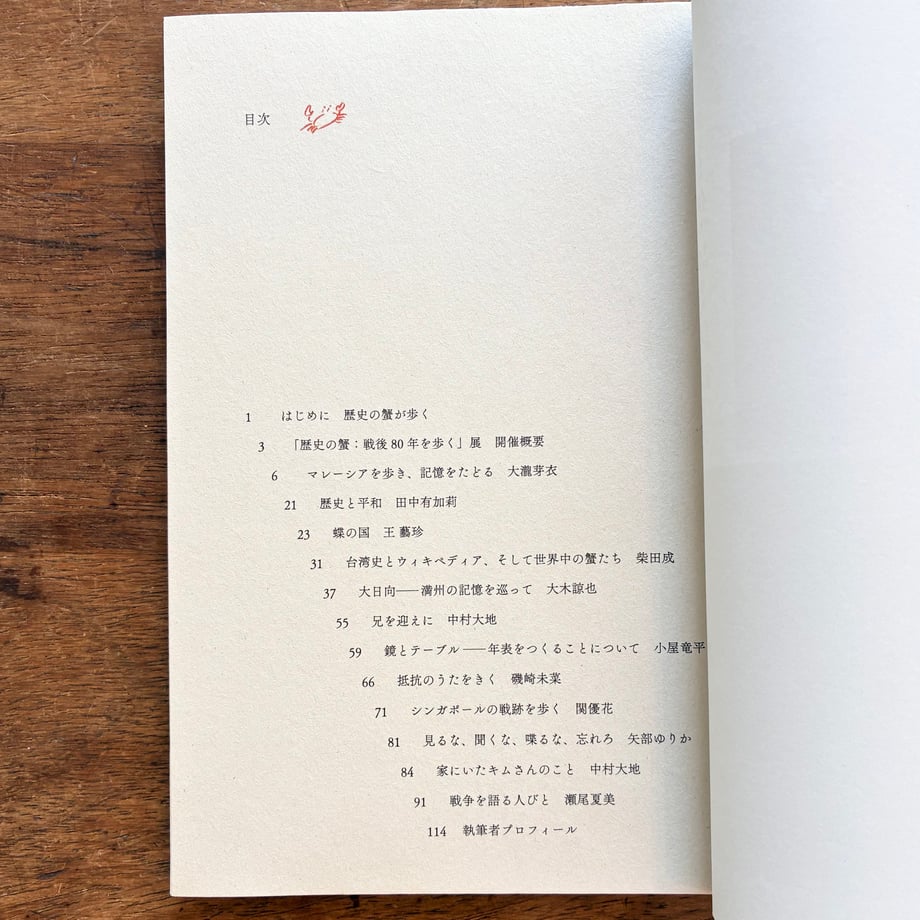 目次
1 はじめに 歴史の蟹が歩く
3 「歴史の蟹：戦後80年を歩く」展 開催概要
6 マレーシアを歩き、記憶をたどる 大瀧芽衣
21 歴史と平和 田中有加莉
23 蝶の国 王藝珍
31 台湾史とウィキペディア、そして世界中の蟹たち 柴田成
37 大日向——満州の記憶を巡って 大木諒也
55 兄を迎えに 中村大地
59 鏡とテーブル——年表をつくることについて 小屋竜平
66 抵抗のうたをきく 磯崎未菜
71 シンガポールの戦跡を歩く 関優花
81 見るな、聞くな、喋るな、忘れろ 矢部ゆりか
84 家にいたキムさんのこと 中村大地
91 戦争を語る人びと 瀬尾夏美
114 執筆者プロフィール